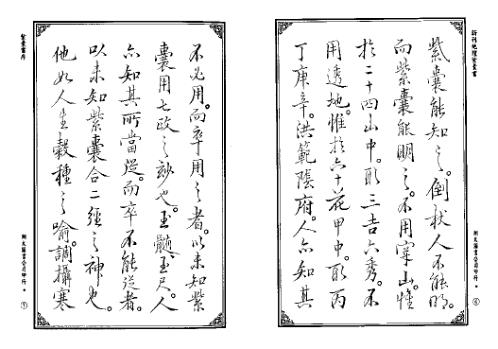 紫囊能知之。倒杖人不能明。
而紫囊能明之。不用穿山。惟
於二十四山中。取三吉六秀。不
用透地。惟於六十花甲中。取丙
丁庚辛。洪範陰府。人亦知其
不必用。而卒用之者。以未知紫
囊用七政之妙也。玉髓玉尺。人
亦知其所當從。而卒不能從者。
以未知紫囊合二經之神也。
他如人生穀種之喻。調攝寒